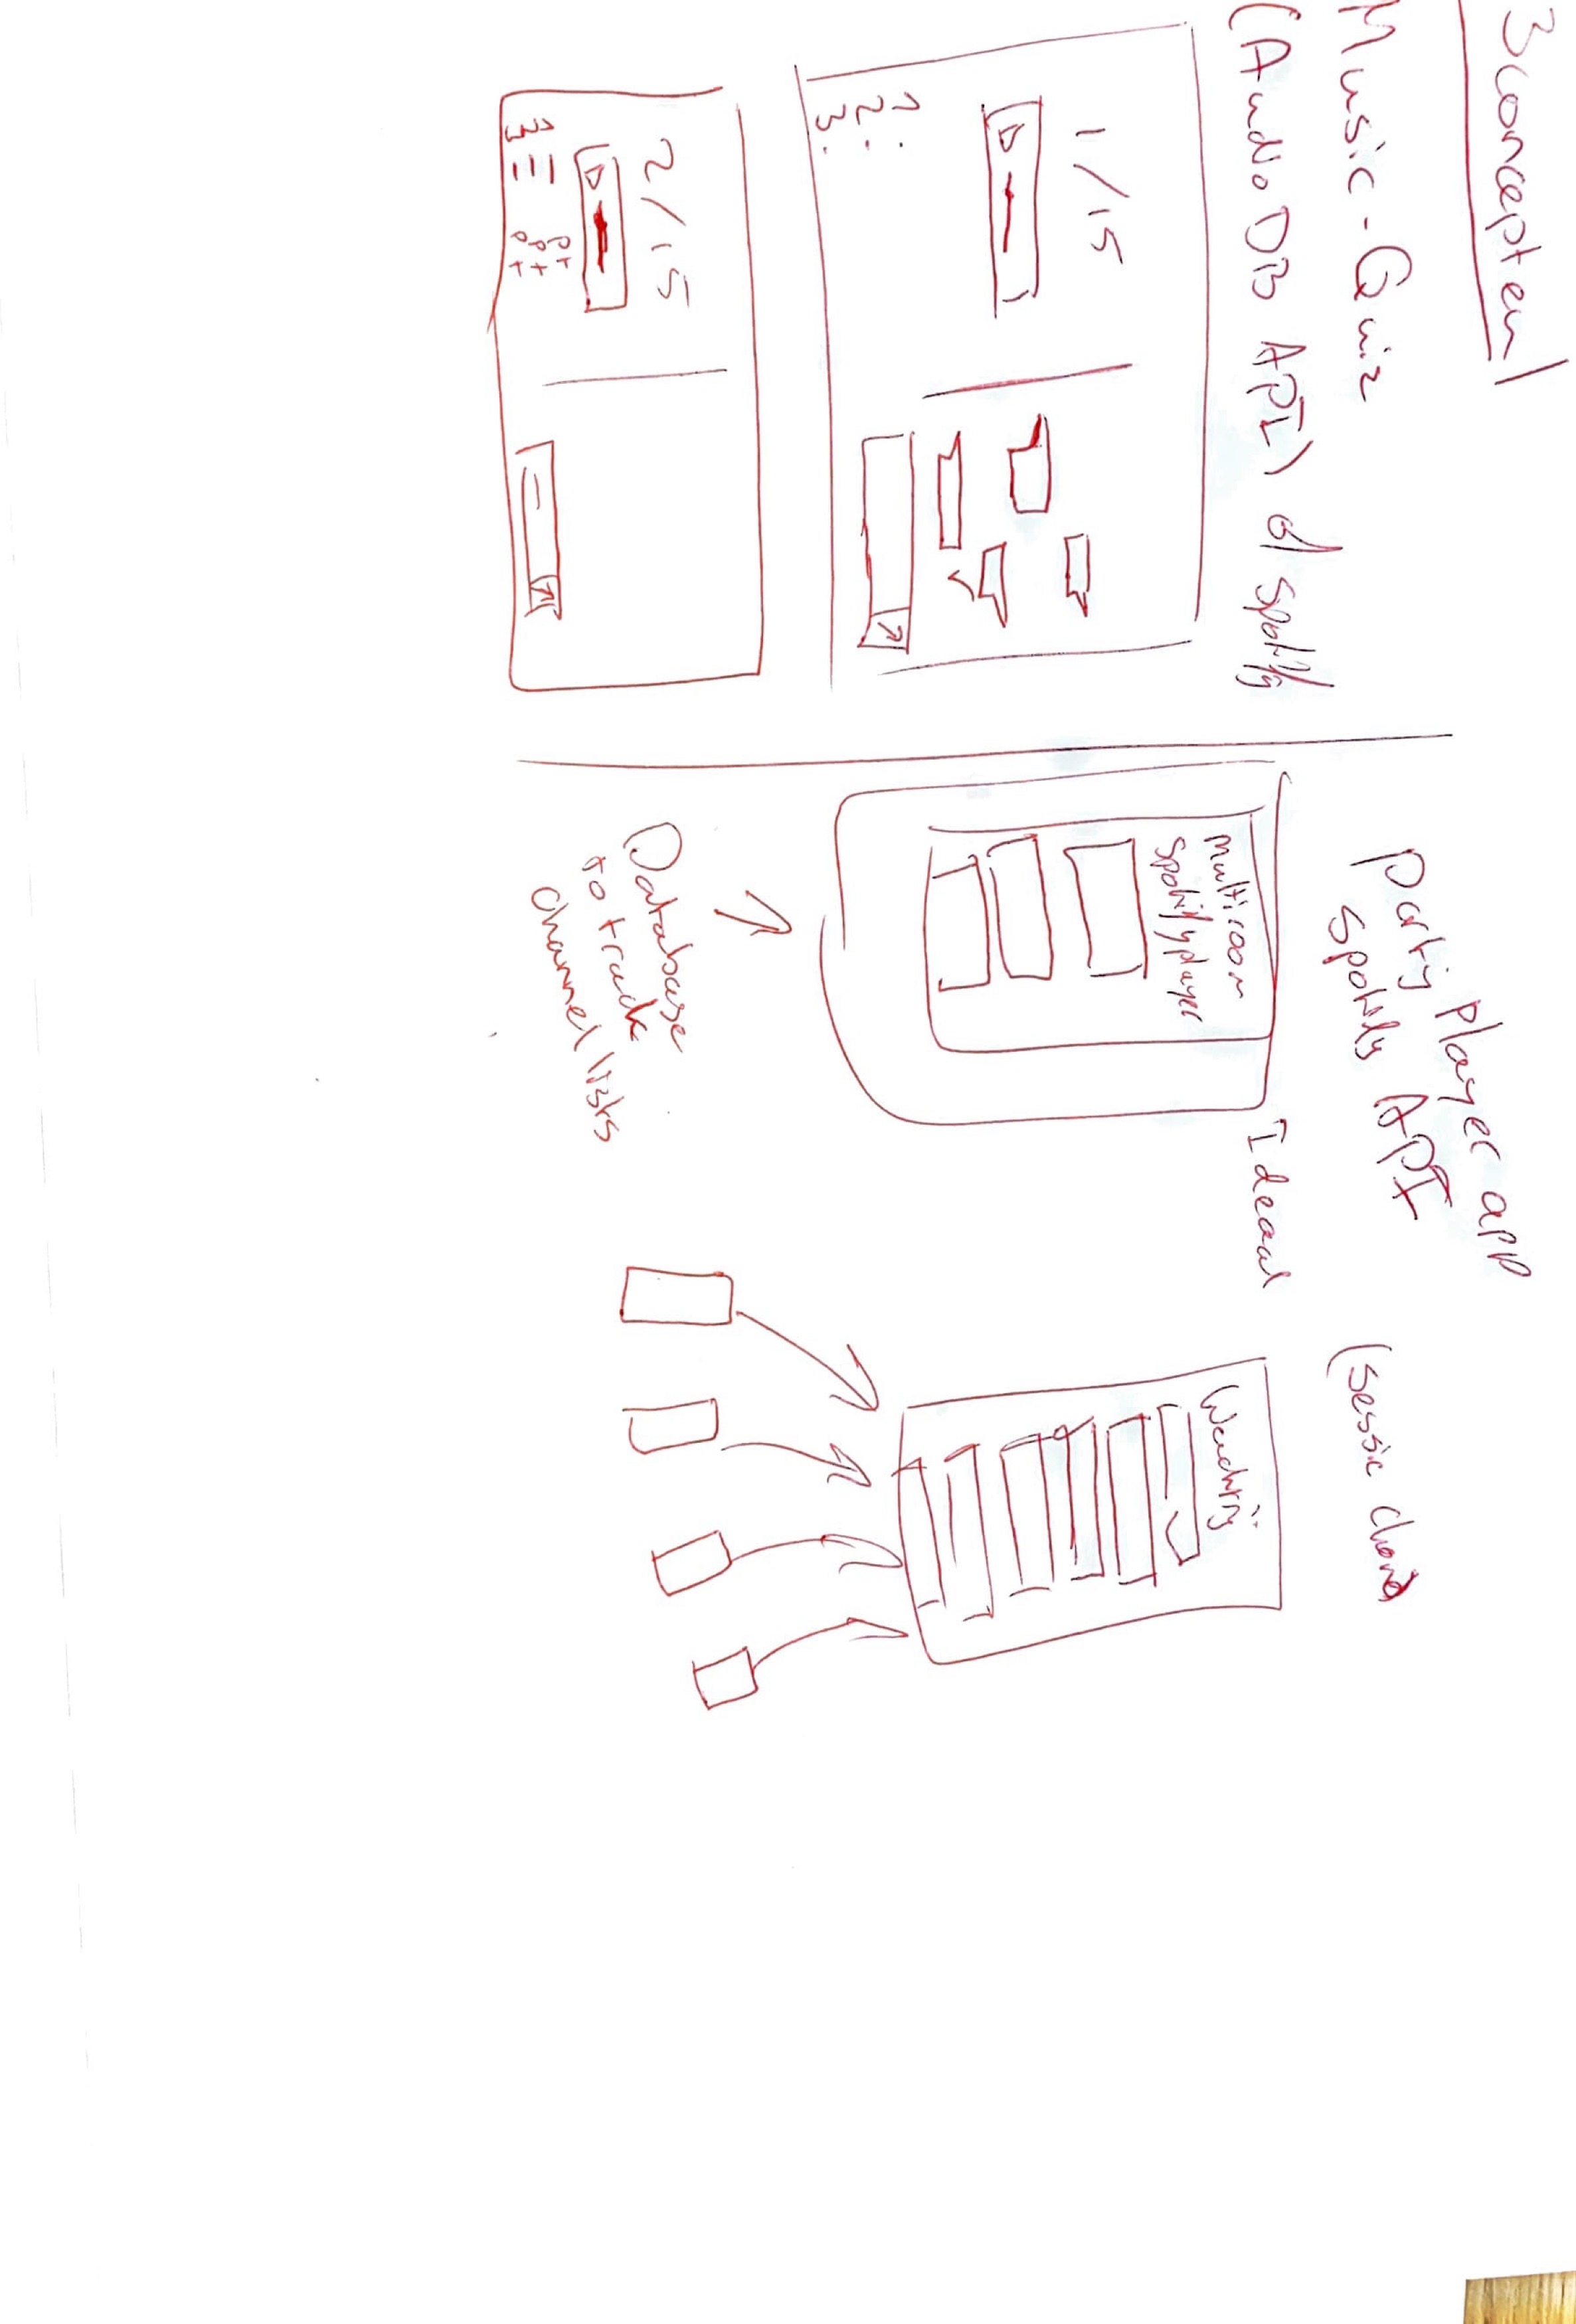 3 concepten
Music-Quiz
(Audio DB API) of spotify
1/15
1.
2.
3.
2/15
1 pt
2 pt
3 pt
Party Player app
Spotify API
Ideaal
Multiroom
Spotifyplayer
Database
to track
channel lists
(Sessie
Wachtrij